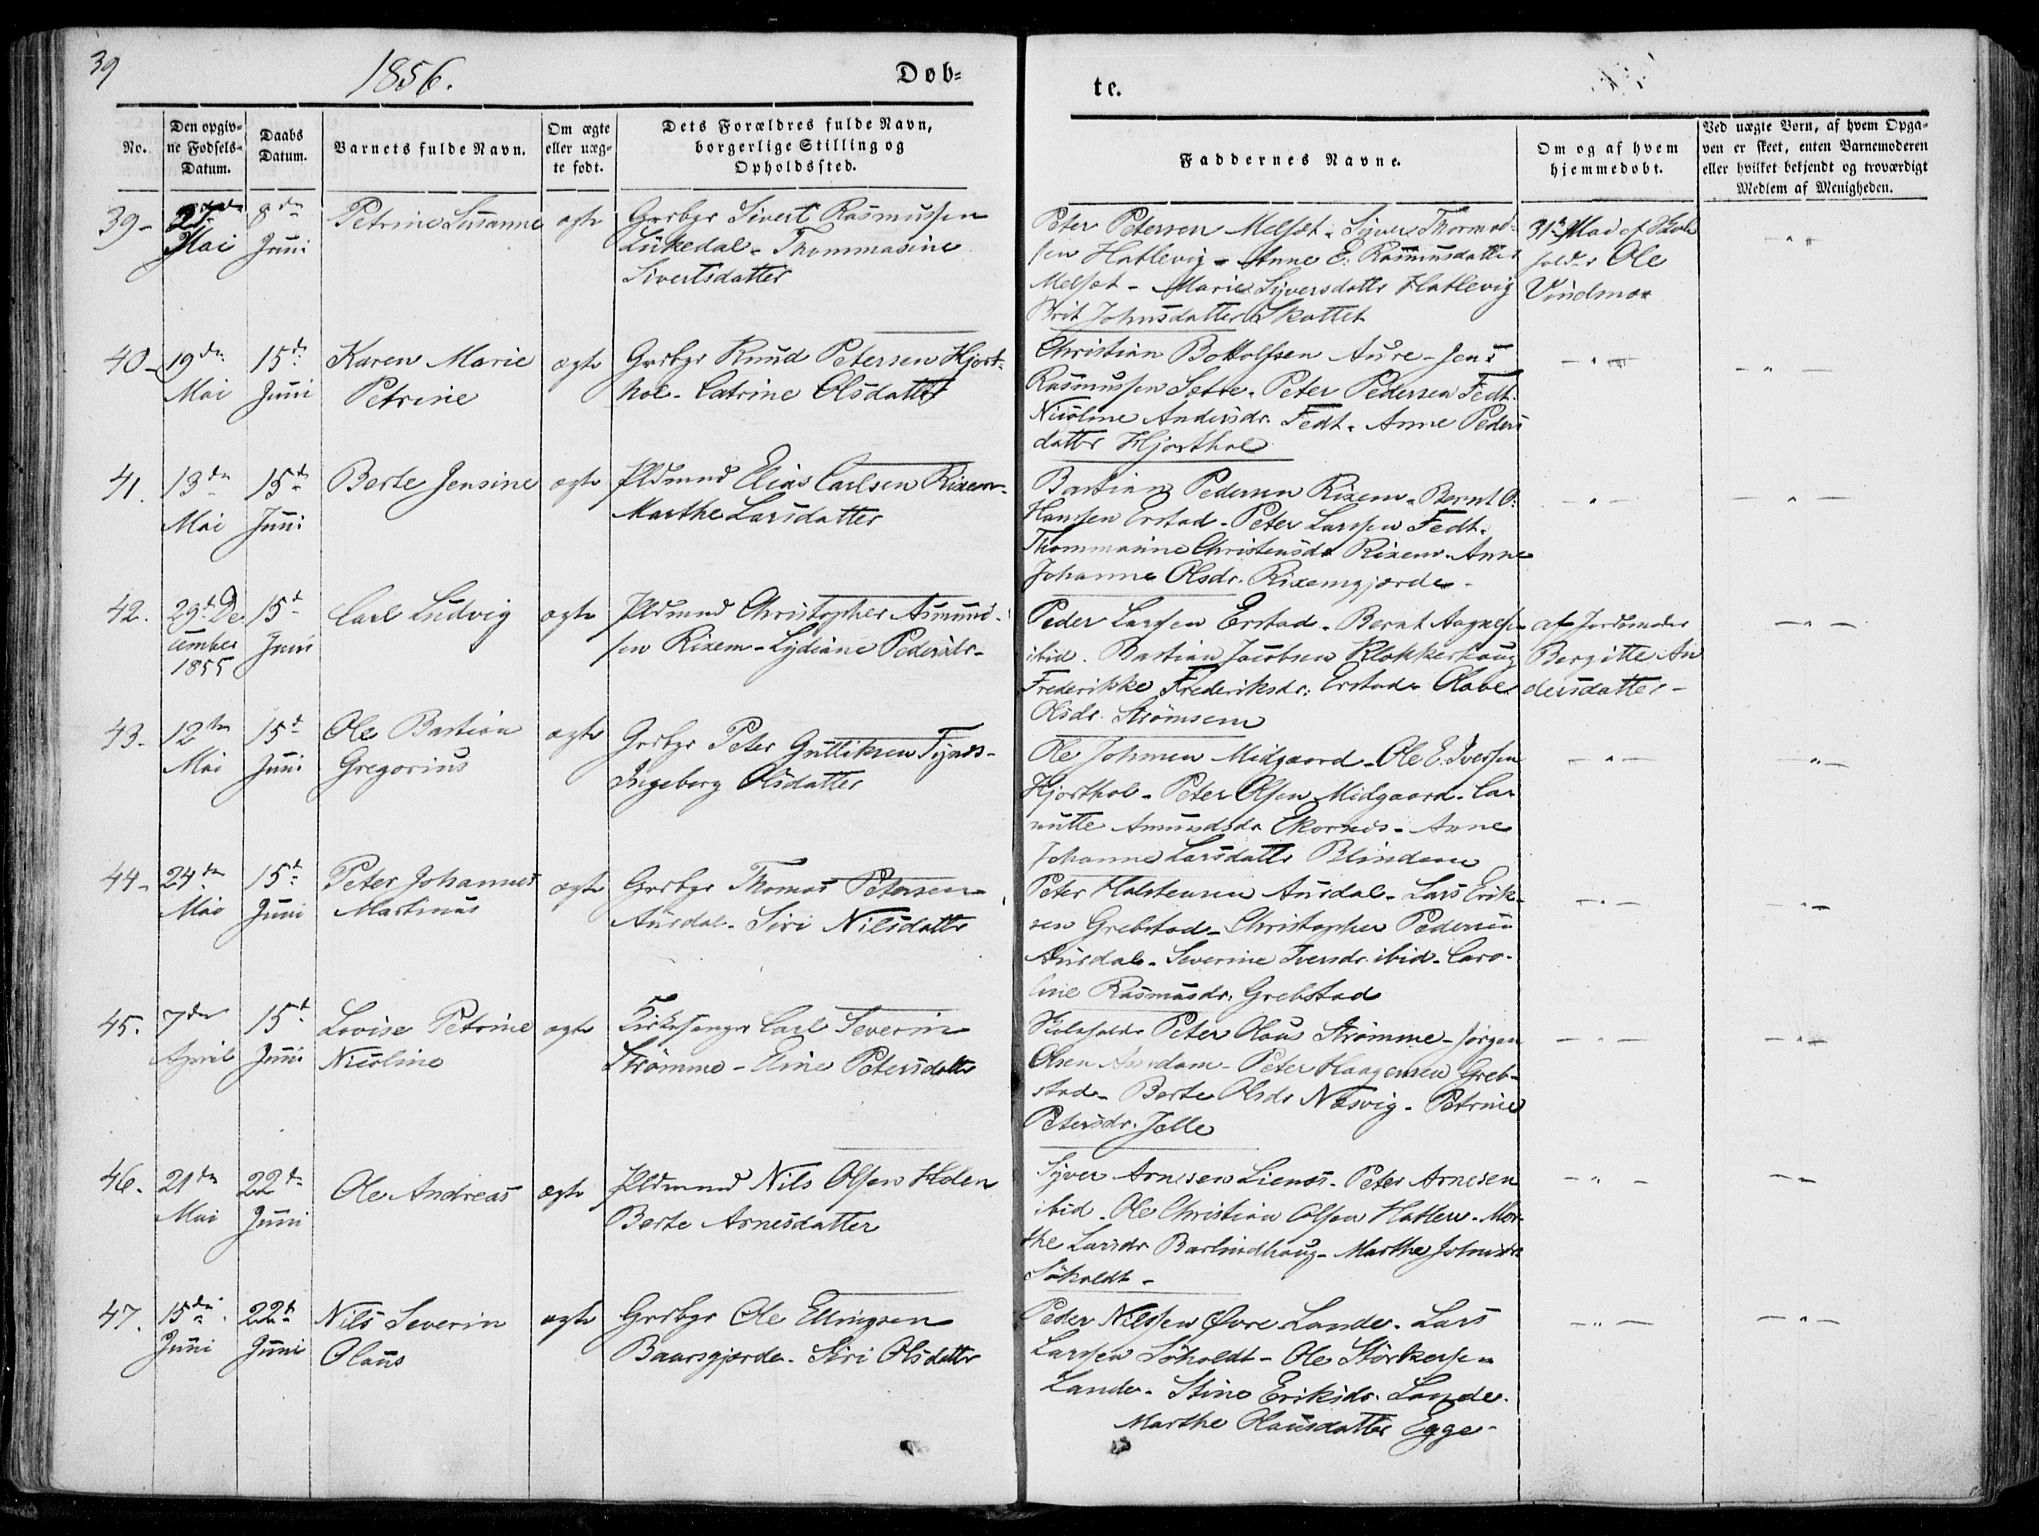 39
1856.
Døb=
te.
No.
Den opgiv-
ne Fødsels-
Datum.
Daabs
Datum.
Barnets fulde Navn.
Om ægte
eller uæg-
te født.
Dets Forældres fulde Navn,
borgerlige Stilling og
Opholdssted.
Faddernes Navne.
Om og af hvem
hjemmedøbt.
Ved uægte Børn, af hvem Opga-
ven er skeet, enten Barnemoderen
eller hvilket bekjendt og troværdigt
Medlem af Menigheden.
39-
27de
Mai
8de
Juni
Petrine Susanne
ægte
Grbgr Sivert Rasmussen
Lükedal - Thommasine
Sivertsdatter
Peter Petersen Melset - Syver Thormod-
sen Hatlevig - Anne E. Rasmusdatter
Melset - Marie Syversdatter Hatlevig
Brit Johnsdatter Skottet
31te Mai af Skole
holder Ole
Vindmoe
40-
19de
Mai
15de
Juni
Karen Marie
Petrine
ægte
Grbgr Knud Petersen Hjort-
hol - Catrine Olsdatter
Christian Bottolfsen Aure - Jens
Rasmussen Sætre - Peter Pedersen Fedt.
Nicoline Andersdr. Fedt - Anne Peders
datter Hjorthol
41.
13de
Mai
15de
Juni
Berte Jensine
ægte
Pldsmnd Elias Carlsen Rixem -
Marthe Larsdatter
Bastian Pedersen Rixem - Bernt O.
Hansen Erstad - Peter Larssen Fedt.
Thommasine Christensdr Rixem - Anne
Johanne Olsdr. Rixemgjerde -
42.
29de De
cember
1855
15de
Juni
Carl Ludvig
ægte
Pldsmnd Christopher Asmund-
sen Rixem - Lydiane Pedersdr -
Peder Larssen Erstad - Bernt Aagesen
ibid. Bastian Jacobsen Klokkerhaug
Frederikke Frederiksdr. Erstad - Olave
Olsdr. Strømsem
af Jordmoder
Bergitte An
dersdatter -
43-
12te
Mai
15de
Juni
Ole Bastian
Gregorius
ægte
Grbgr Peter Gulliksen Tynes -
Ingeborg Olsdatter
Ole Johnsen Midgaard - Ole E. Iversen
Hjorthol - Peter Olsen Midgaard - La-
Amundsdr Ekornes - Anne
Johanne Larsdatter Blindem
44-
24de
Mai
15de
Juni
Peter Johannes
Martinus
ægte
Grbgr Thomas Petersen
Aursdal - Siri Nilsdatter
Peter Holstensen Aursdal - Lars Erik-
sen Grebstad - Christopher Pedersen
Aursdal - Severine Iversdr. ibid - Caro-
line Rasmusdr. Grebstad
45.
7de
April
15de
Juni
Lovise Petrine
Nicoline
ægte
Kirkesanger Carl Severin
Strømme - Eline Petersdatter
Skoleholder Peter Olaus Strømme - Jørgen
Olsen - Peter Haagensen Greb-
stad - Berte Olsdr Næsvig - Petrine
Petersdr. Jelle
46.
21de
Mai
22de
Juni
Ole Andreas
ægte
Pldsmnd Nils Olsen Holen
Berte Arnesdatter
Syver Arnesen Lienes - Peter Arnesen
ibid - Ole Christian Olsen Hatlen - Mar-
the Larsdr Barlindhaug - Marthe Johnsdr
Søholdt -
47.
15de
Juni
22de
Juni
Nils Severin
Olaus
ægte
Grdbgr Ole Ellingsen
Baarsgjerde - Siri Olsdatter
Peder Nilssen Øvre Lande - Lars
Larssen Søholdt - Ole Størkersen
Lande - Stine Eriksdr. Lande.
Marthe Olausdatter Egge -